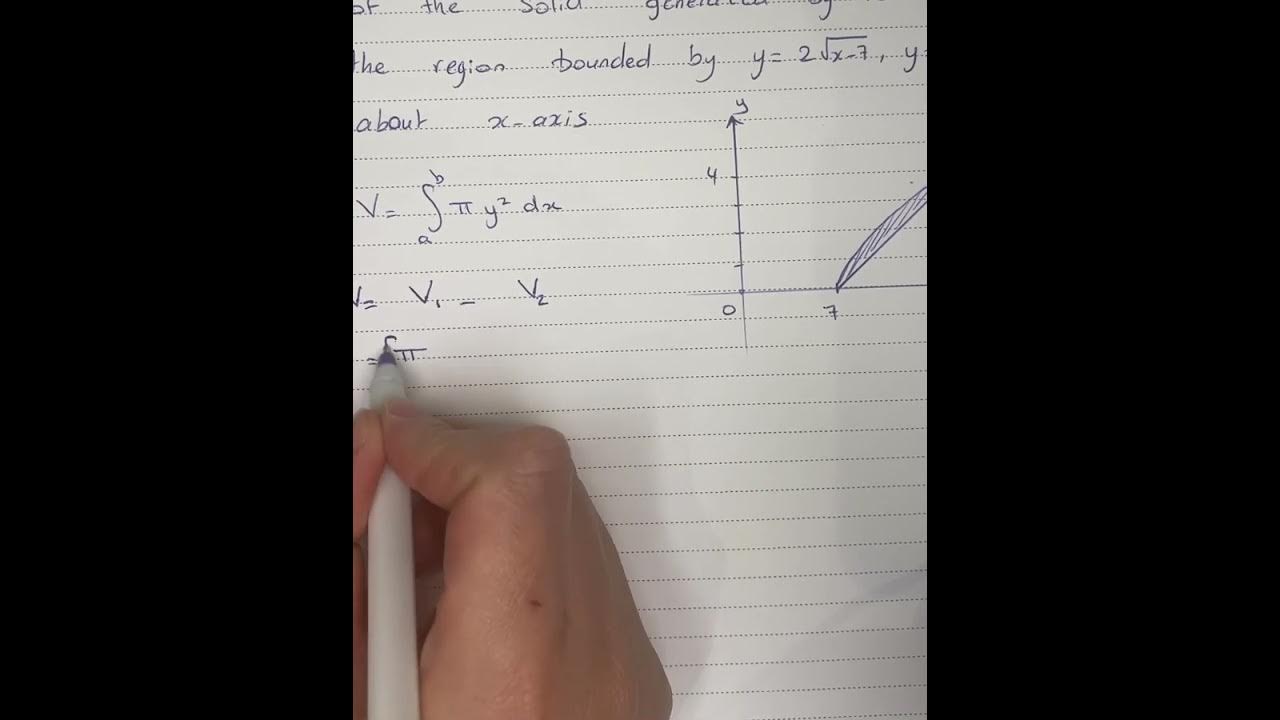 of the solid generated by
the region bounded by y = 2√(x-7), y =
about x-axis
y
4
V = ∫_a^b π y² dx
V = V₁ - V₂
0 7
= ∫π